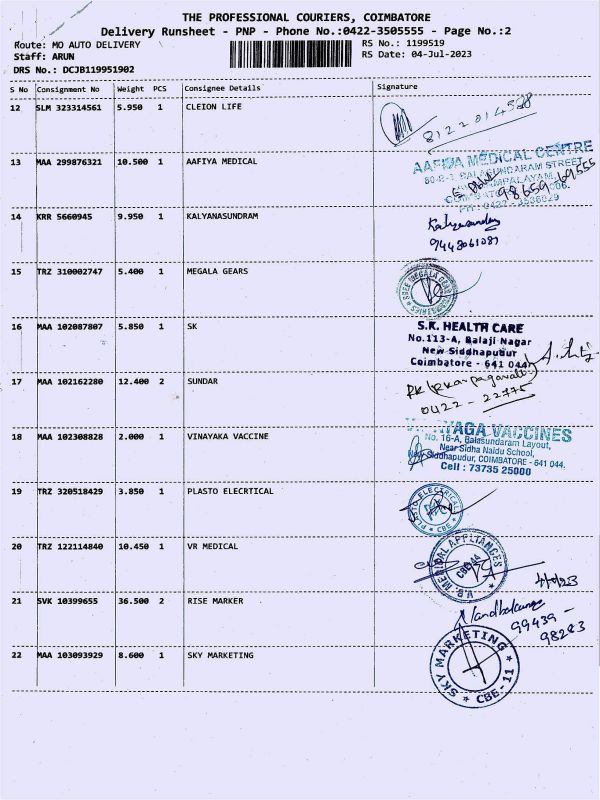 THE PROFESSIONAL COURIERS, COIMBATORE
Delivery Runsheet - PNP - Phone No.:0422-3505555 - Page No.:2
Route: MO AUTO DELIVERY RS No.: 1199519
Staff: ARUN RS Date: 04-Jul-2023
DRS No.: DCJB119951902
S No Consignment No Weight PCS Consignee Details Signature
12 SLM 323314561 5.950 1 CLEION LIFE
8122014588
13 MAA 299876321 10.500 1 AAFIYA MEDICAL
AAFIYA MEDICAL CENTRE
14 KRR 5660945 9.950 1 KALYANASUNDRAM
Kalyanasunday
9448061081
15 TRZ 310002747 5.400 1 MEGALA GEARS
SREE MEGALA GEAR
16 MAA 102087807 5.850 1 SK
S.K. HEALTH CARE
No.113-A, Balaji Nagar
New Siddhapudur
Coimbatore - 641 044
17 MAA 102162280 12.400 2 SUNDAR
0422 - 22775
18 MAA 102308828 2.000 1 VINAYAKA VACCINE
VACCINES
No. 16-A, Balasundaram Layout,
Near Sidha Naidu School,
New Siddhapudur, COIMBATORE - 641 044.
Cell : 73735 25000
19 TRZ 320518429 3.850 1 PLASTO ELECRTICAL
PLASTO ELECTRICAL
CBE
20 TRZ 122114840 10.450 1 VR MEDICAL
V.R. MEDICAL APPLIANCES
CBE-44
4/7/23
21 SVK 10399655 36.500 2 RISE MARKER
99439 -
98283
22 MAA 103093929 8.600 1 SKY MARKETING
SKY MARKETING
CBE - 11